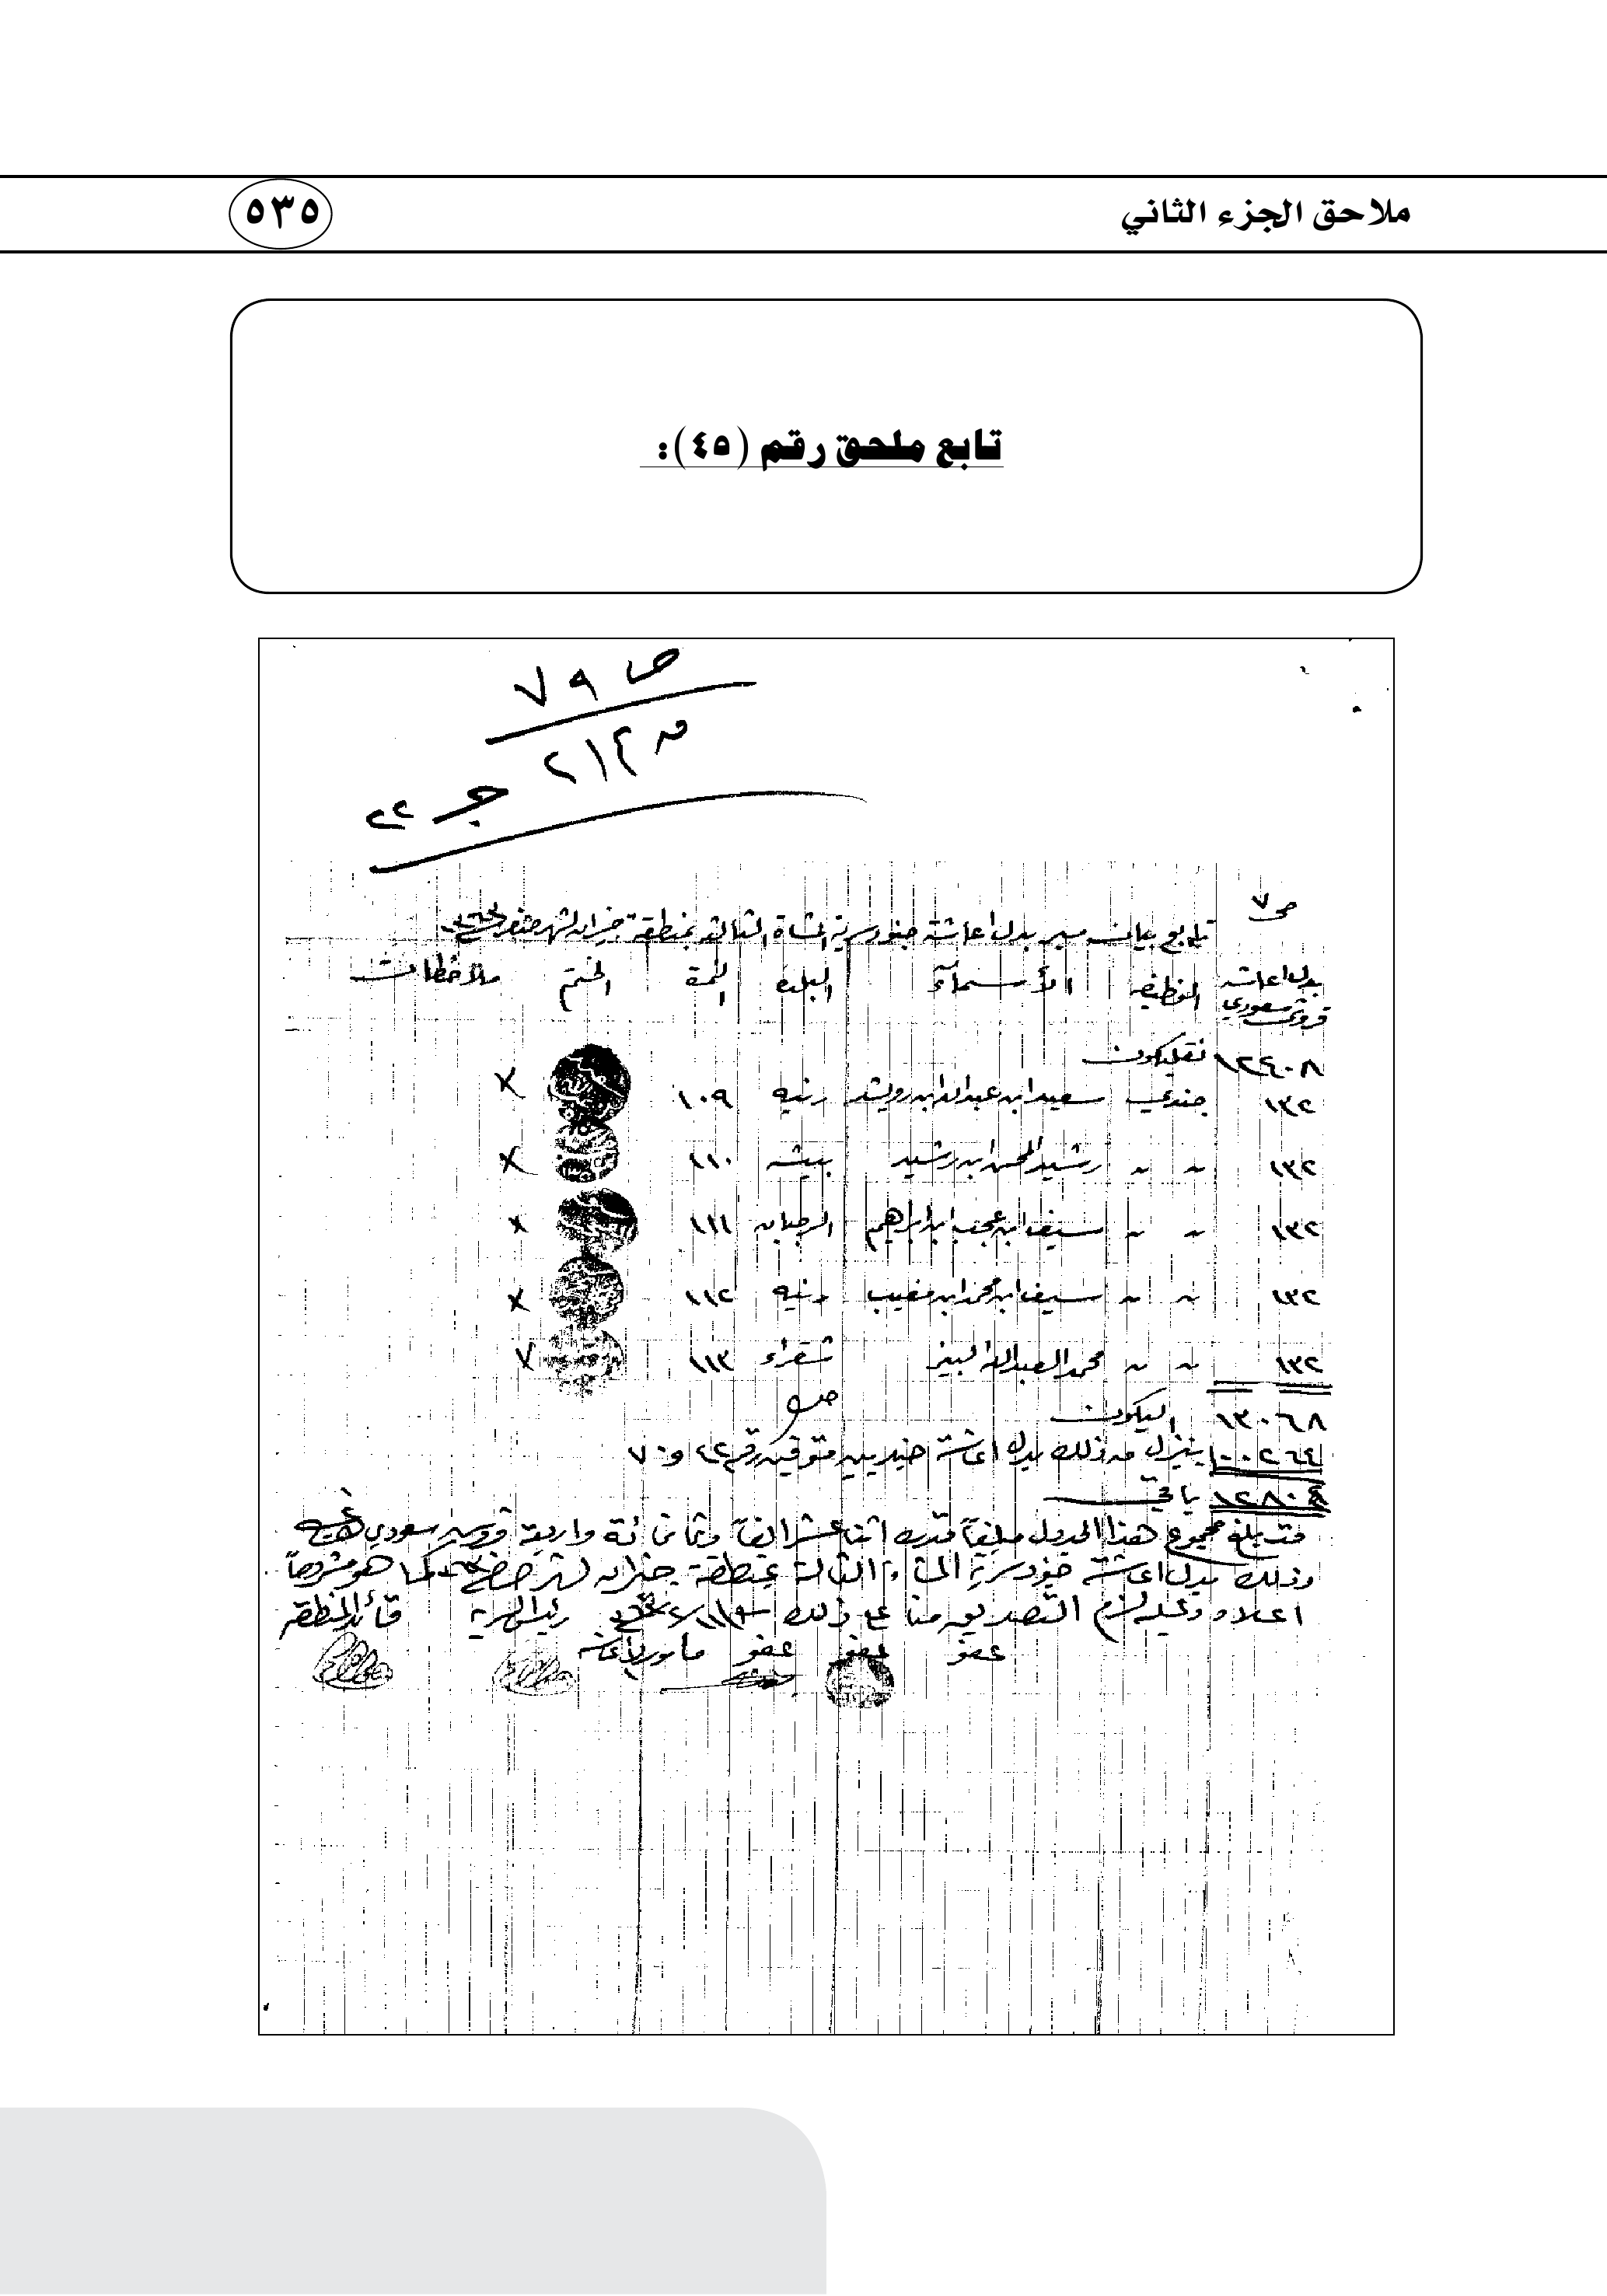 ملاحق الجزء الثاني ٥٣٥
تابع ملحق رقم (٤٥):
ص ٧٩
٢١٢
جـ ٢٢
ص ٧
تابع بيان مسير بدل اعاشة جنود سرية المشاة الثالثة بمنطقة جيزان لشهر صفر
بدل اعاشه قروش سعودي الوظيفه الأسماء البلده النمرة الختم ملاحظات
١٢٤٠٨ نقليكون
١٣٢ جندي سعيد ابن عبدالله ابن رويشد رنيه ١٠٩
١٣٢ 〃 〃 رشيد المحسن ابن رشيد بيشه ١١٠
١٣٢ 〃 〃 سيف ابن عجب ابن ابراهيم الرجبان ١١١
١٣٢ 〃 〃 سيف ابن محمد ابن مغيب رنيه ١١٢
١٣٢ 〃 〃 محمد العبدالله البيز شقراء ١١٣
١٣٠٦٨ اليكون
٠٠٢٦٤ ينزل من ذلك بدل اعاشة جنديين متوفين رقم ٤٢ و ٧٠
١٢٨٠٤ باقي
فقد بلغ مجموع هذا الجدول مبلغاً قدره اثنا عشر الفاً وثمانمائة واربعة قروش سعودي
وذلك بدل اعاشة جنود سرية المشاة الثالثة بمنطقة جيزان لشهر صفر كما هو مشروحاً
اعلاه وعليه لزم التصديق منا على ذلك رئيس السرية قائد المنطقه
عضو عضو عضو مأمور الاعاشه